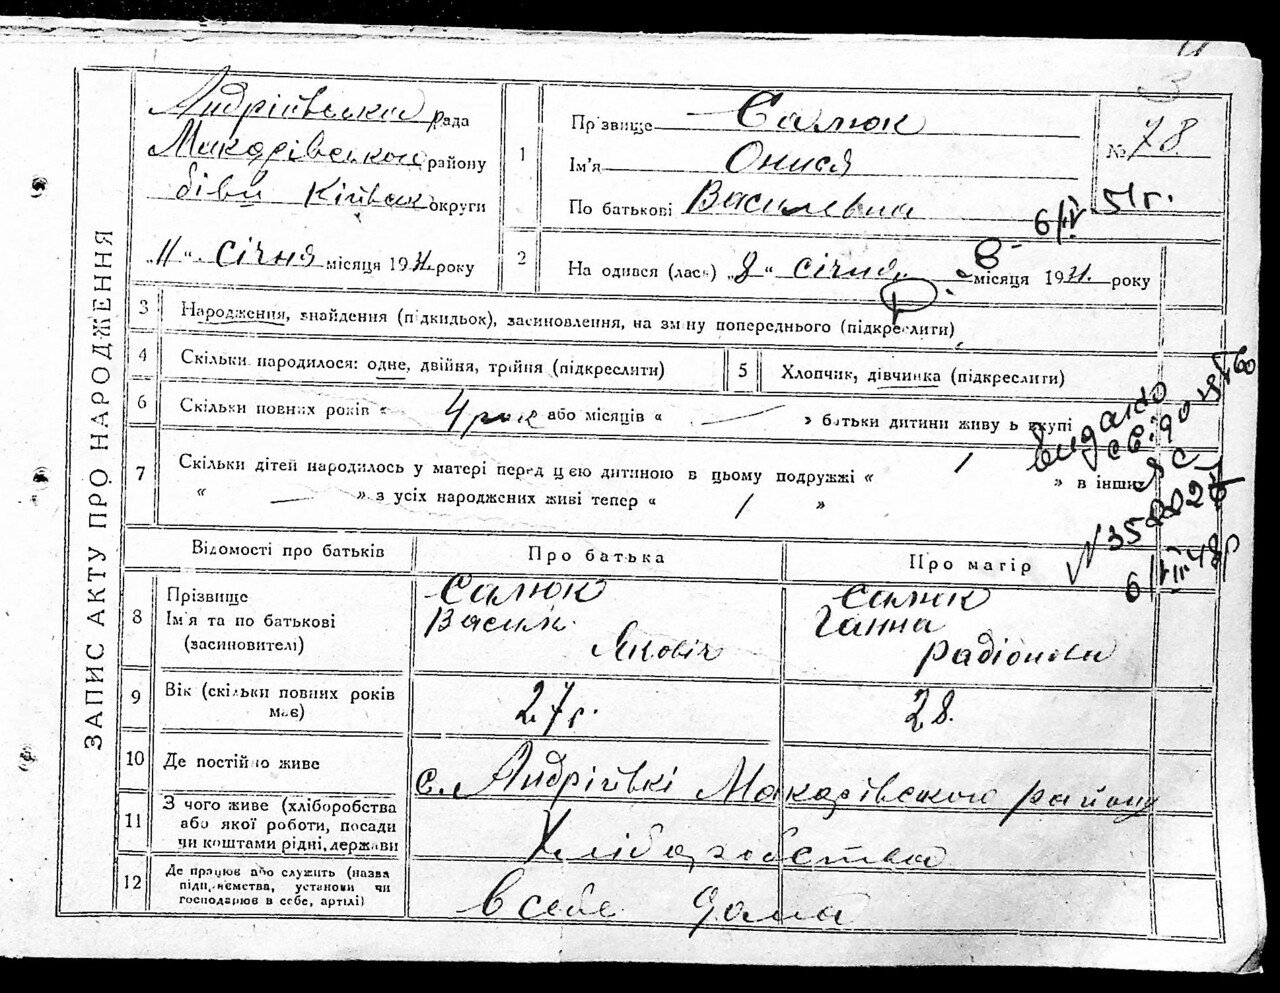 3
ЗАПИС АКТУ ПРО НАРОДЖЕННЯ
Андріївська рада
Макарівського району
бівш Київськ округи
„11“ січня місяця 1931. року
1
Прізвище Салюк
Ім'я Онися
По батькові Василевна
№ 78
6/IV 51г.
2
На одився (лася) „8“ січня місяця 1931. року
8
3 Народження, знайдення (підкидьок), засиновлення, на зміну попереднього (підкреслити)
4 Скільки народилося: одне, двійня, трійня (підкреслити)
5 Хлопчик, дівчинка (підкреслити)
6 Скільки повних років « 4 рок або місяців « — » батьки дитини живу ь вкупі
7 Скільки дітей народилось у матері перед цією дитиною в цьому подружжі « 1 » в інших
« — » з усіх народжених живі тепер « 1 »
Видано
N 358827
6/VII 48р
Відомості про батьків
Про батька
Про матір
8 Прізвище
Ім'я та по батькові
(засиновителі)
Салюк
Василь
Яковіч
Салюк
Ганна
Радіонова
9 Вік (скільки повних років
має)
27 г.
28.
10 Де постійно живе
с. Андріївкі Макарівського району
11 З чого живе (хліборобства
або якої роботи, посади
чи коштами рідні, держави
Хліборобства
12 Де працює або служить (назва
підприємства, установи чи
господарює в себе, артілі)
в себе дома